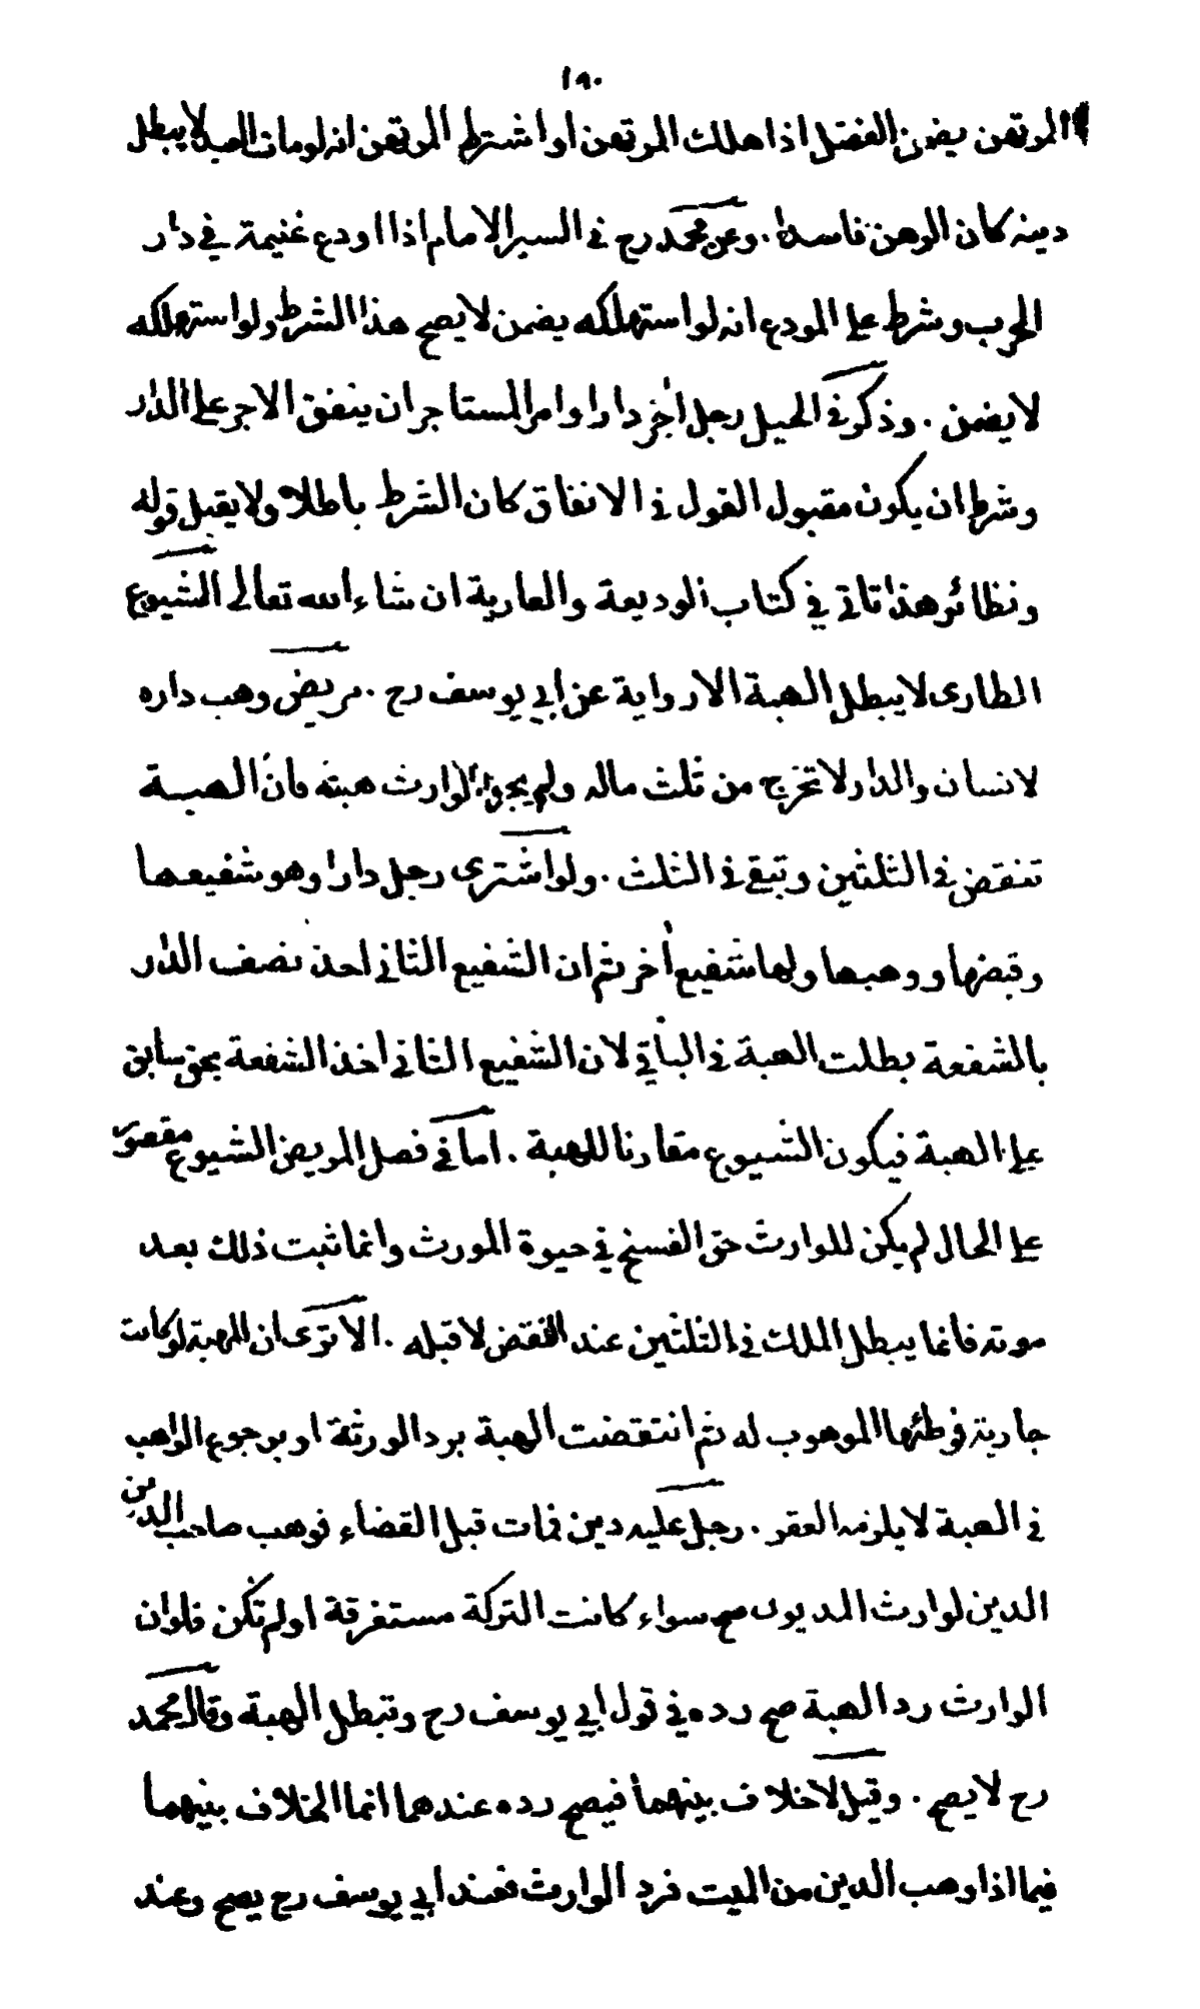 ١٩٠
المرتهن يضمن الفضل اذا هلك المرتهن او اشترط المرتهن انه لو مات العبد لا يبطل
دينه كان الرهن فاسدا . وعن محمد رح في السير الامام اذا اودع غنيمة في دار
الحرب وشرط على المودع انه لو استهلكه يضمن لا يصح هذا الشرط ولو استهلكه
لا يضمن . وذكر في الحيل رجل اٰجر دارا وامر المستاجر ان ينفق الاجر على الدار
وشرط ان يكون مقبول القول في الانفاق كان الشرط باطلا ولا يقبل قوله
ونظائر هذا تاتي في كتاب الوديعة والعارية ان شاء الله تعالى الشيوع
الطارى لا يبطل الهبة الا رواية عن ابي يوسف رح . مريض وهب داره
لانسان والدار لا تخرج من ثلث ماله ولم يجز الوارث هبته فان الهبة
تنقض في الثلثين وتبقى في الثلث . ولو اشترى رجل دارا وهو شفيعها
وقبضها ووهبها ولها شفيع اٰخر ثم ان الشفيع الثاني احذ نصف الدار
بالشفعة بطلت الهبة في الباقي لان الشفيع الثاني اخذ الشفعة بحق سابق
على الهبة فيكون الشيوع مقارنا للهبة . اما في فصل المريض الشيوع مقصور
على الحال لم يكن للوارث حق الفسخ في حيوة المورث وانما ثبت ذلك بعد
موته فانما يبطل الملك في الثلثين عند النقض لا قبله . الا ترى ان الهبة لو كانت
جارية فوطئها الموهوب له ثم انتقضت الهبة برد الورثة او برجوع الواهب
في الهبة لا يلزمه العقر . رجل عليه دين فمات قبل القضاء فوهب صاحب الدين
الدين لوارث المديون صح سواء كانت التركة مستغرقة او لم تكن فلو ان
الوارث رد الهبة صح رده في قول ابي يوسف رح وتبطل الهبة وقال محمد
رح لا يصح . وقيل لا خلاف بينهما فيصح رده عندهما انما الخلاف بينهما
فيما اذا وهب الدين من الميت فرد الوارث فعند ابي يوسف رح يصح وعند